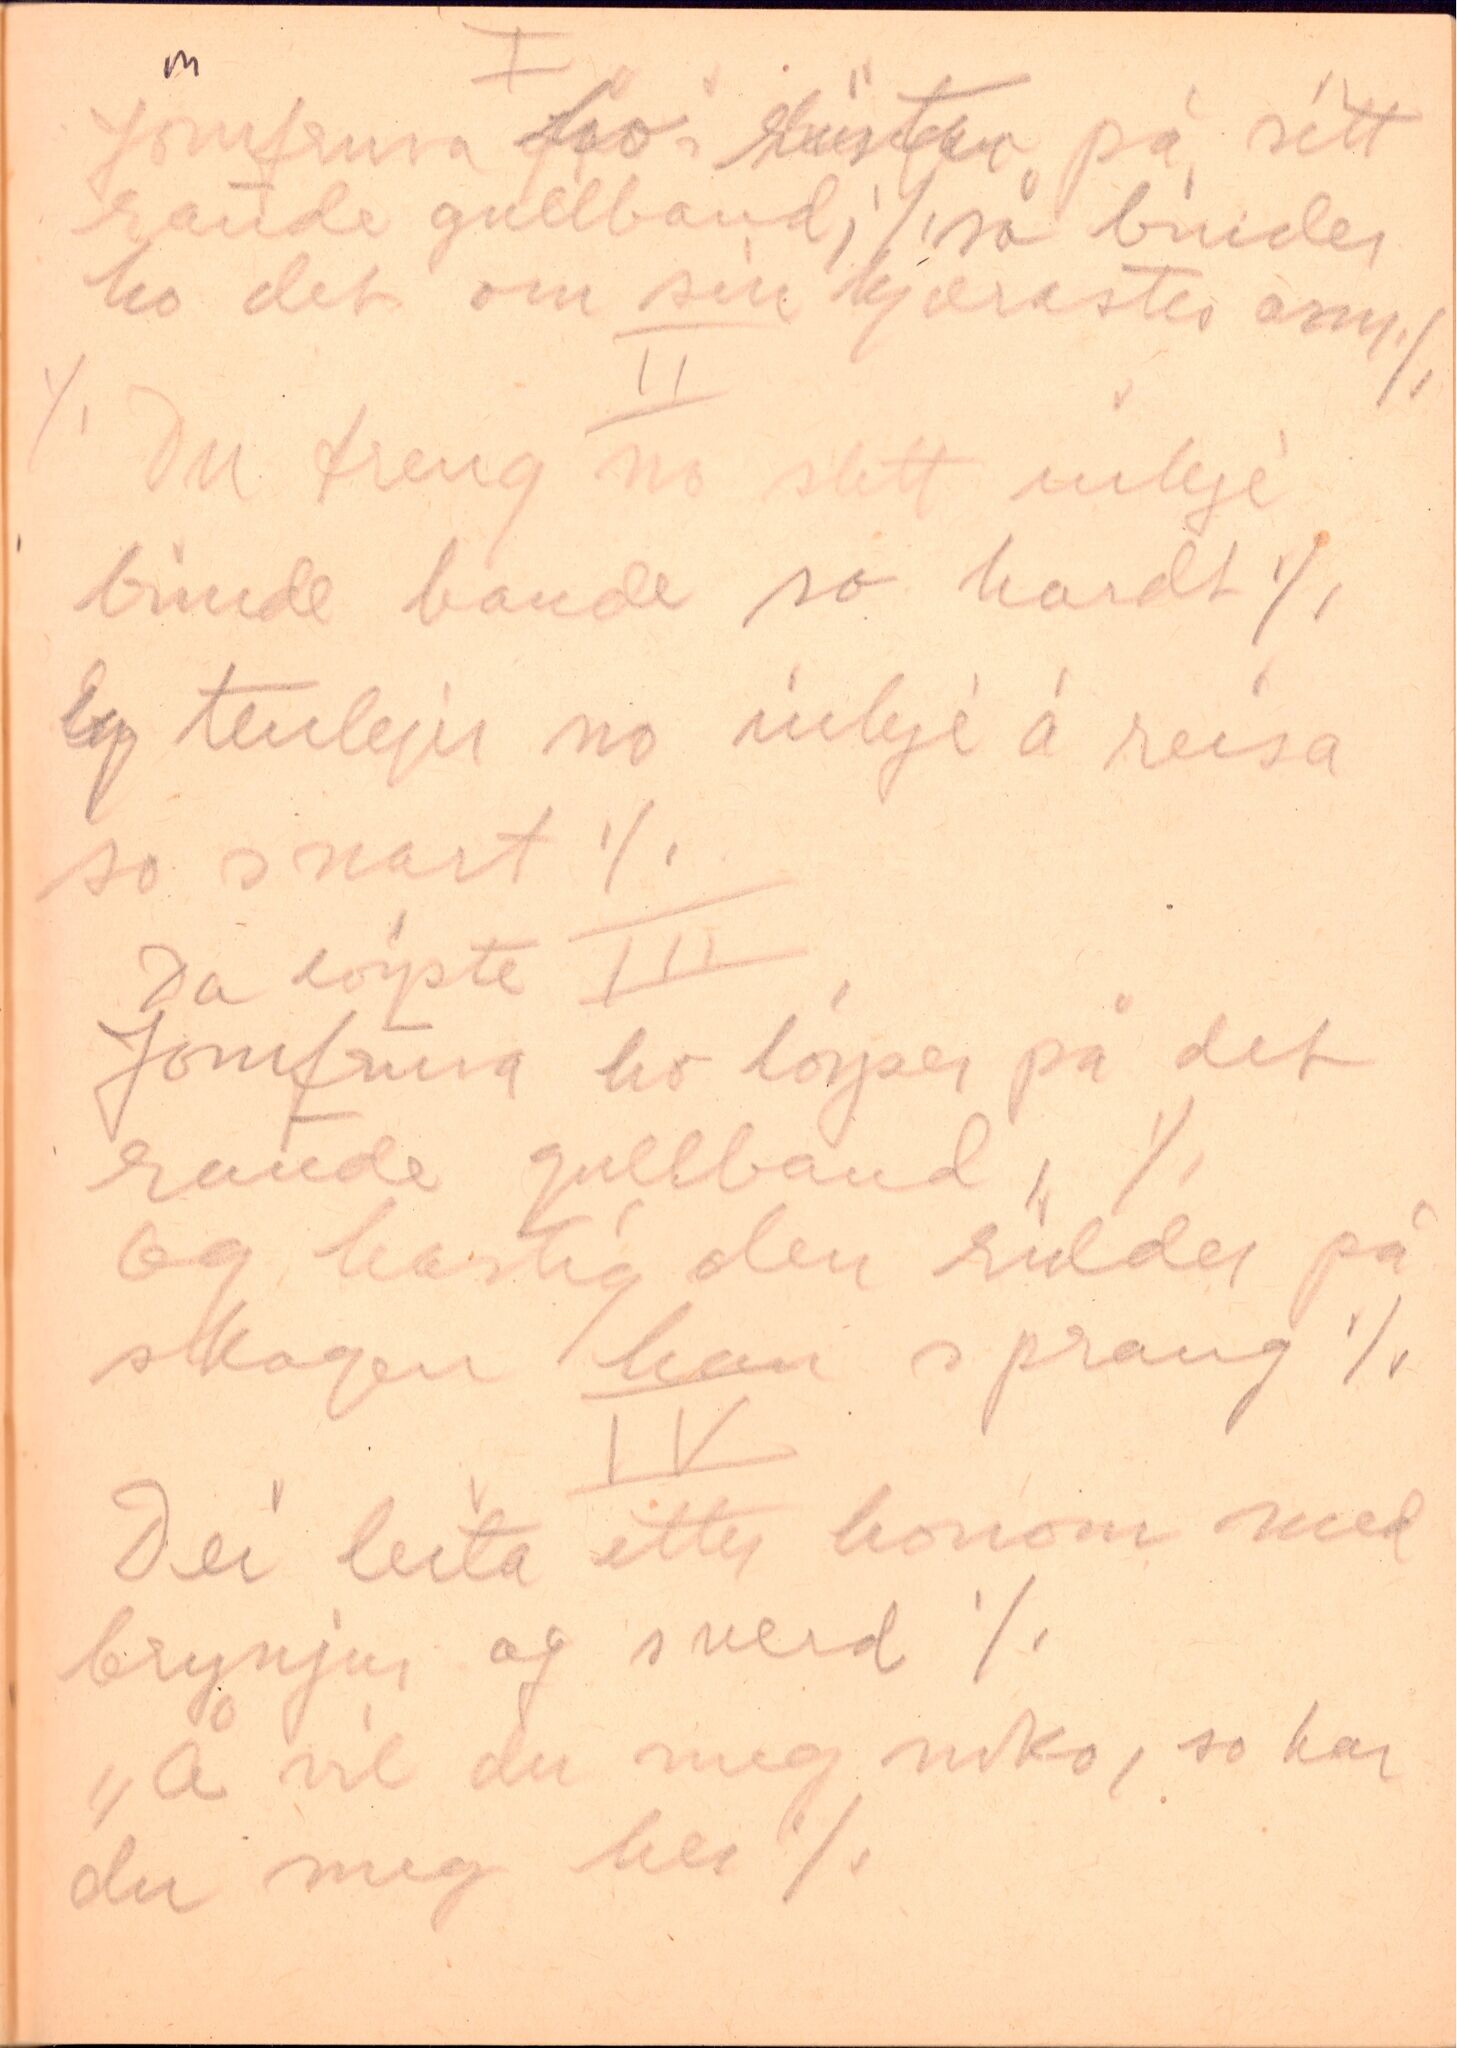 m
I
Jomfruva ho på sitt
raude gullband, ·/. så binder
ho det om sin kjærastes arm. ·/.
II
·/. Du treng no slett inkje
binde bande so hardt ·/.
Eg tenkjer no inkje å reisa
so snart ·/.
III
Da löyste
Jomfruva ho löyser på det
raude gullband, ·/.
og hastig den ridder på
skogen han sprang ·/.
IV
Dei leita etter honom med
brynjur og sverd ·/.
„Å vil du meg noko, so har
du meg her ·/.